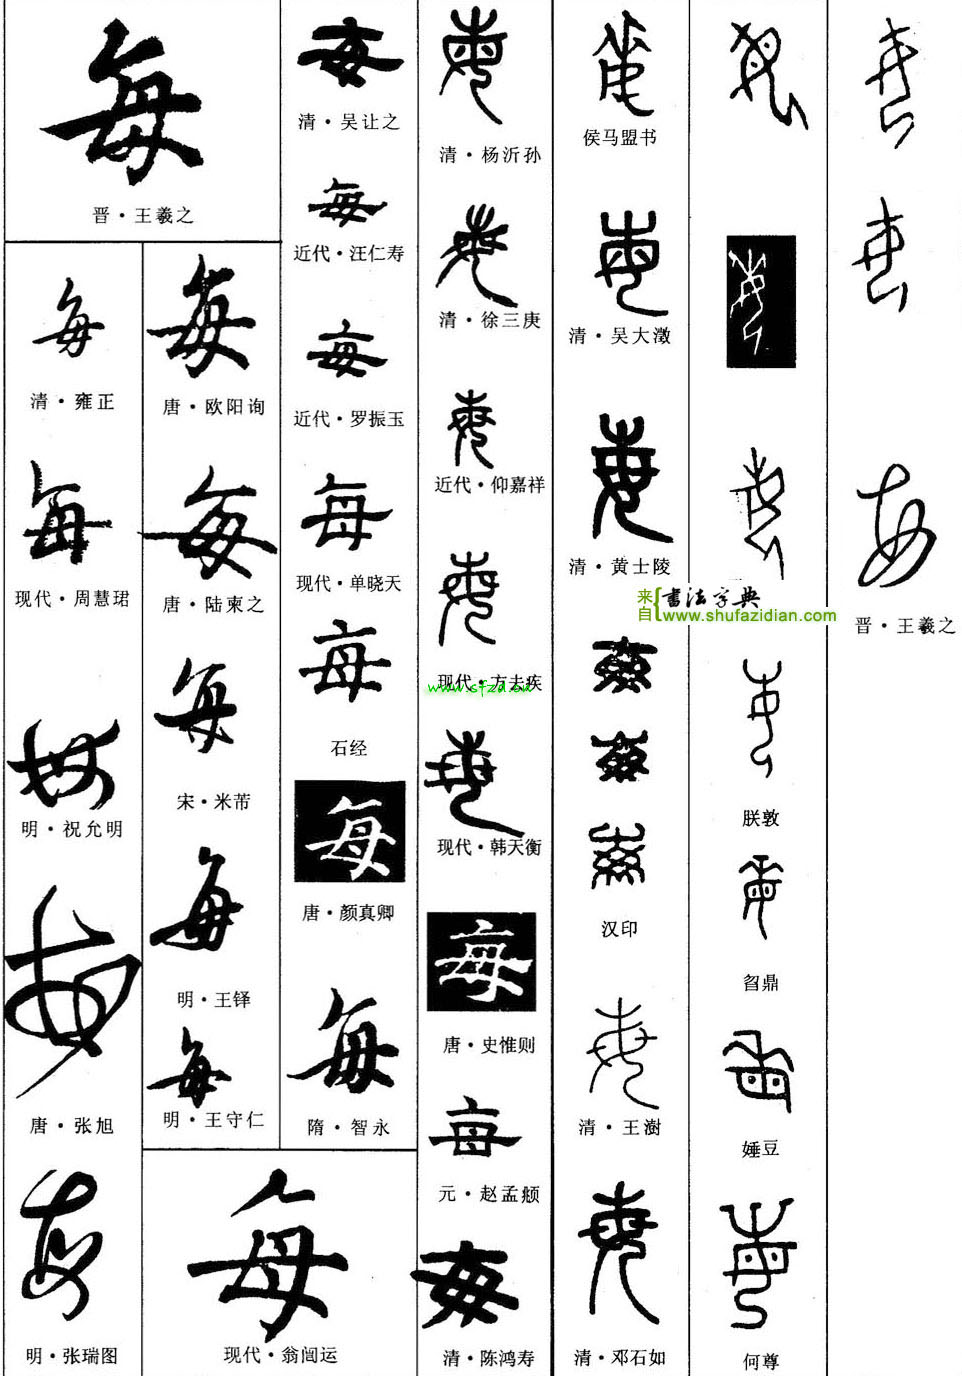 每
晋·王羲之
每
清·雍正
每
现代·周慧珺
每
明·祝允明
每
唐·张旭
每
明·张瑞图
每
唐·欧阳询
每
唐·陆柬之
每
宋·米芾
每
明·王铎
每
明·王守仁
每
现代·翁闿运
每
清·吴让之
每
近代·汪仁寿
每
近代·罗振玉
每
现代·单晓天
每
石经
每
唐·颜真卿
每
隋·智永
每
清·杨沂孙
每
清·徐三庚
每
近代·仰嘉祥
每
现代·方去疾
www.sfzd.cn
每
现代·韩天衡
每
唐·史惟则
每
元·赵孟頫
每
清·陈鸿寿
每
侯马盟书
每
清·吴大澂
每
清·黄士陵
每
每
每
汉印
每
清·王澍
每
清·邓石如
每
每
每
来自 书法字典
www.shufazidian.com
每
朕敦
每
曶鼎
每
娷豆
每
何尊
每
每
每
晋·王羲之